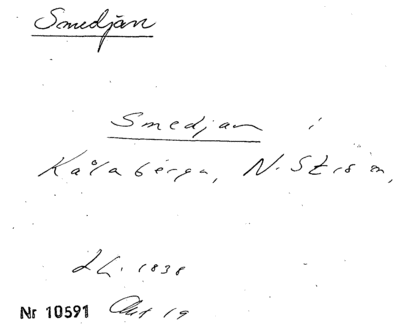 Smedjan
Smedjan i
Kålaberga, N. Strö sn,
1838
Nr 10591 Akt 19